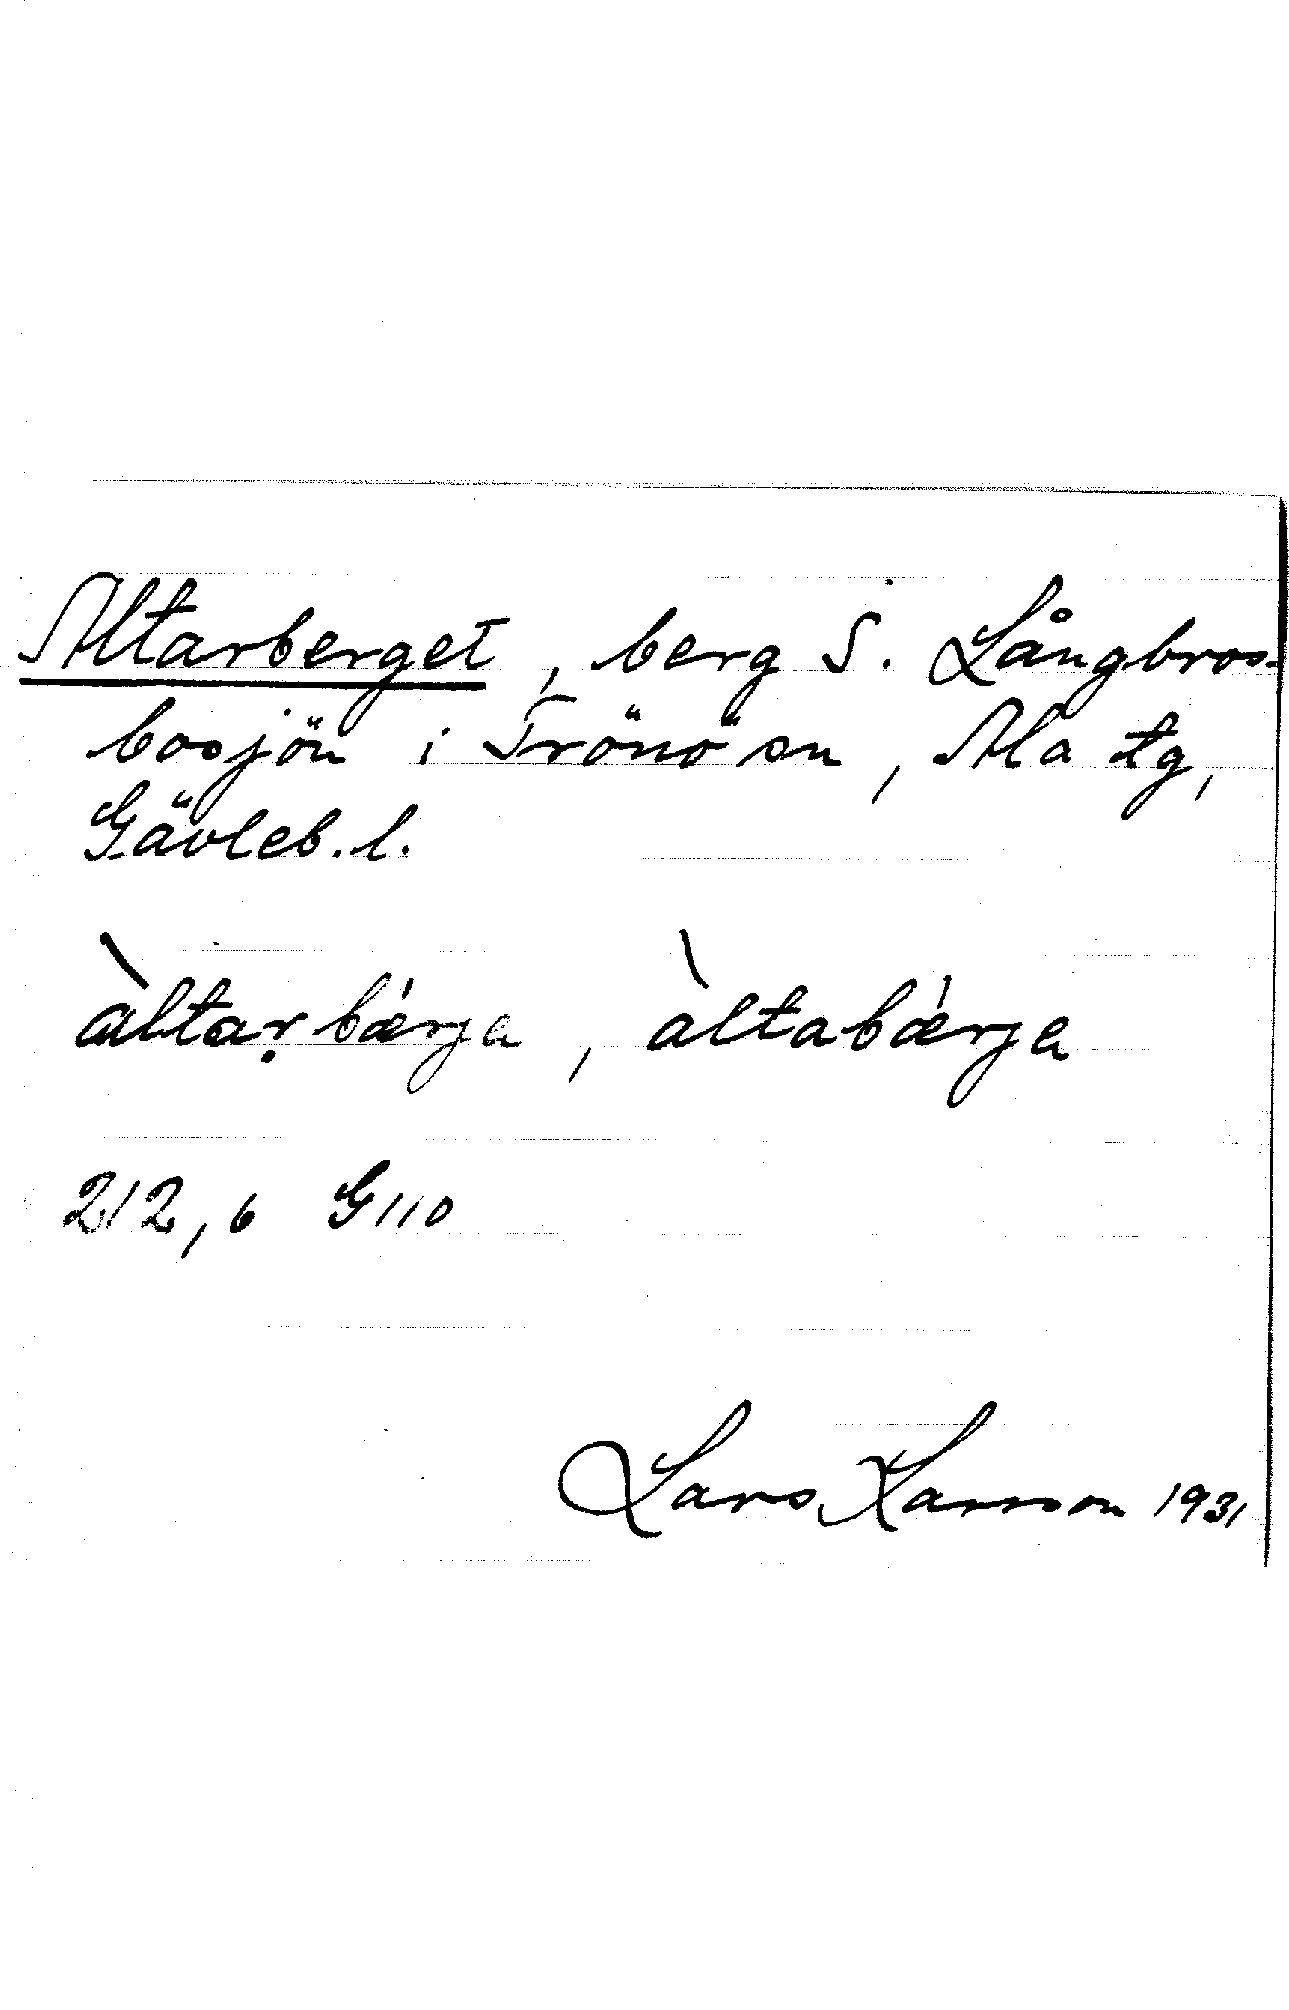 Altarberget, berg S. Långbros-
bosjön i Trönö sn, Ala tg,
Gävleb. l.
àltaṛbǽrja, àltabǽrja
212,6 G110
Lars Karsson 1931